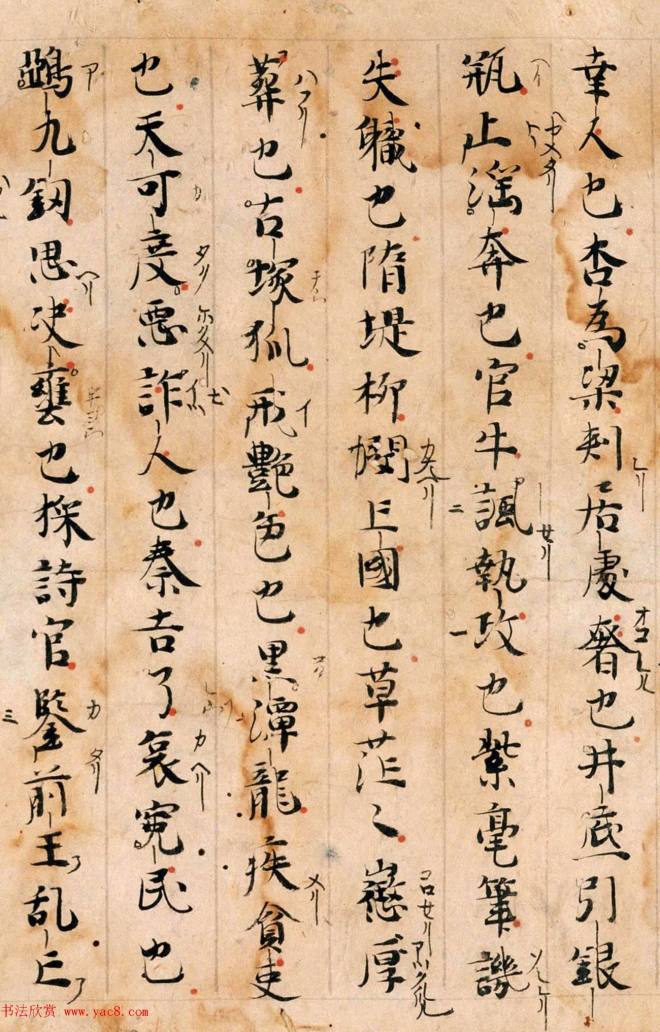 幸人也杏為梁刺居處奢也井底引銀
瓶止淫奔也官牛諷執政也紫毫筆譏
失職也隋堤柳憫亡國也草茫〻懲厚
葬也古塚狐戒艷色也黒潭龍疾貪吏
也天可度惡詐人也秦吉了哀寃民也
鵶九劔思决壅也採詩官鑒前王乱亡
书法欣赏 www.yac8.com